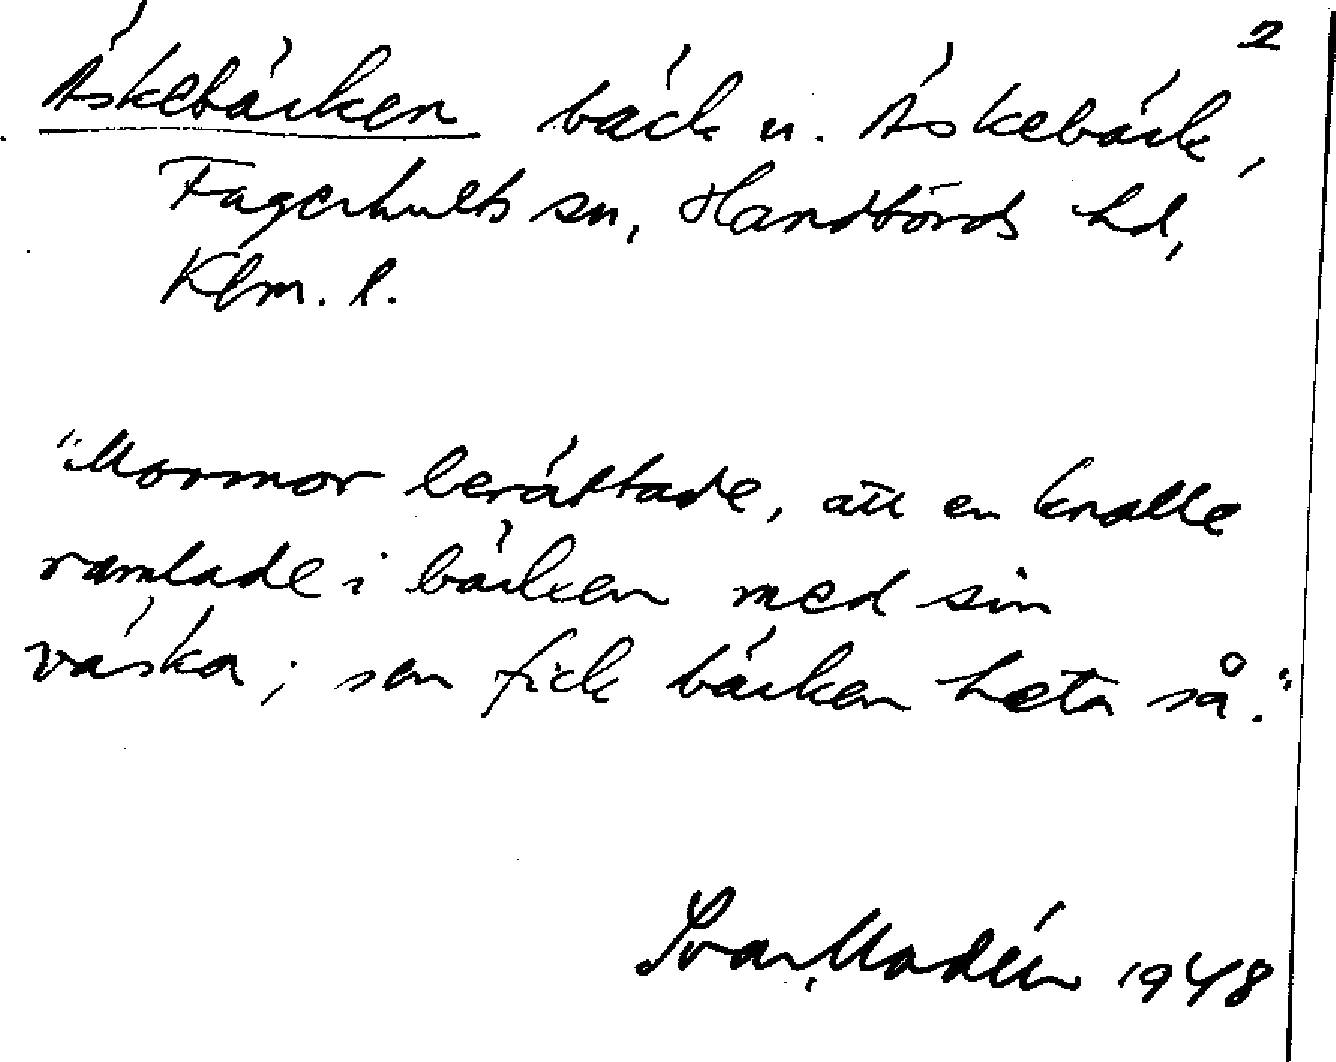 2
Äskebäcken bäck n. Äskebäck,
Fagerhults sn, Handbörds hd,
Klm. l.
"Mormor berättade, att en knalle
ramlade i bäcken med sin
väska; sen fick bäcken heta så."
Ivar Modéer 1948